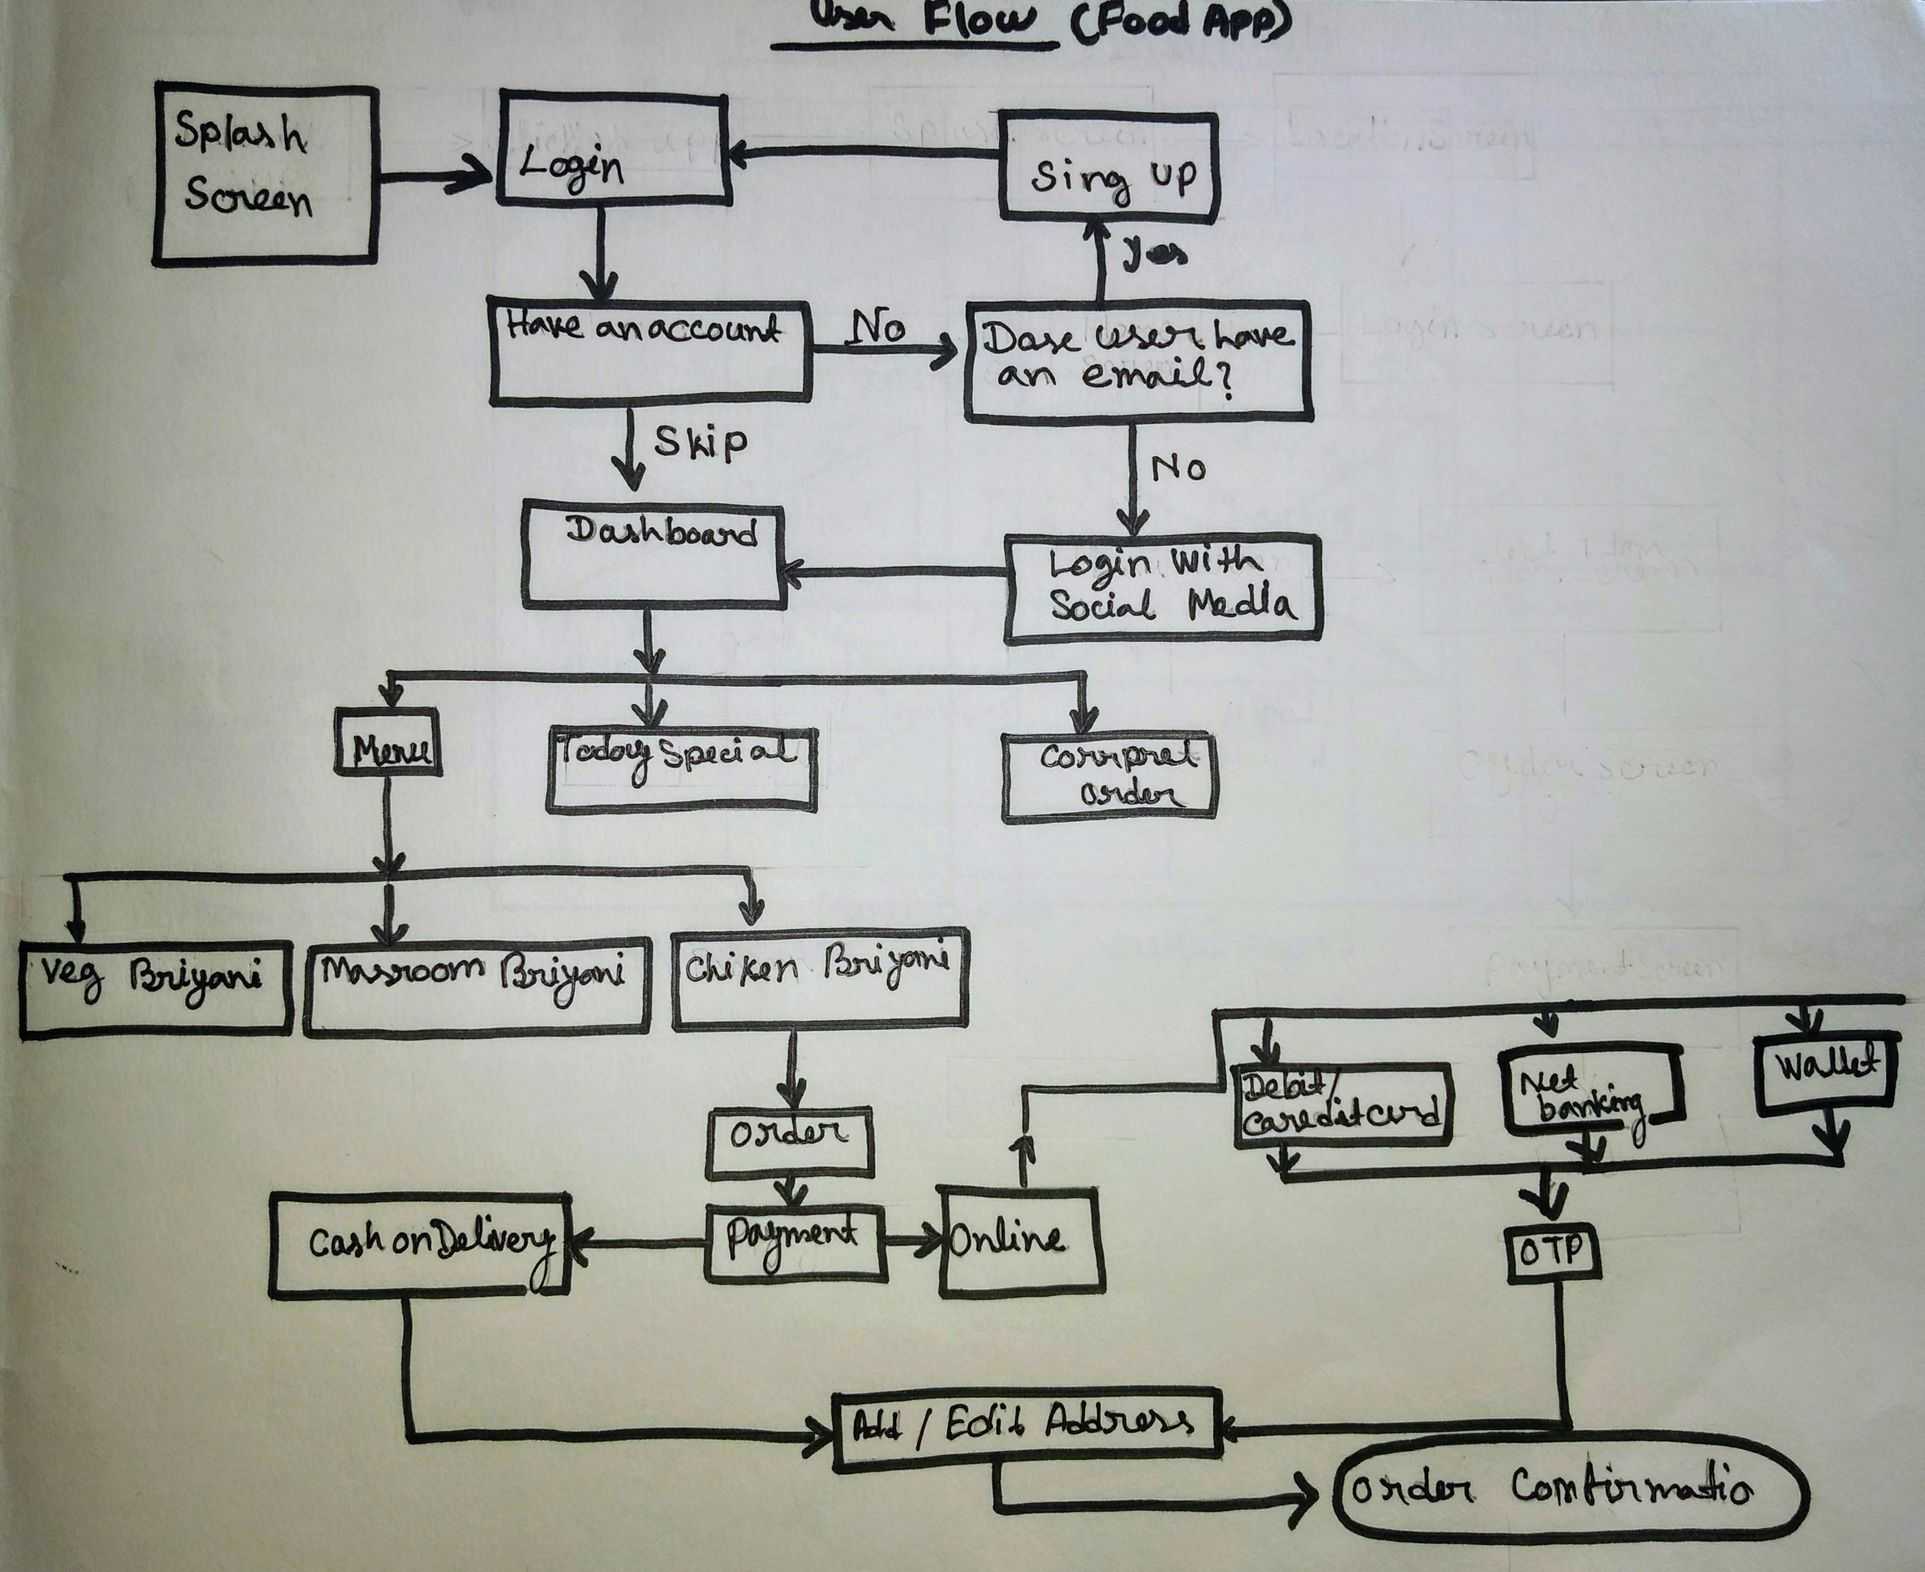 User Flow (Food App)
Splash
Screen
Login
Sing up
Yes
Have an account
No
Dose user have
an email?
Skip
No
Dashboard
Login With
Social Media
Menu
Today Special
Corrpret
order
Veg Briyani
Masroom Briyani
Chiken Briyani
Debit/
Careditcurd
Net
banking
Wallet
Order
Cash on Delivery
Payment
Online
OTP
Add / Edit Address
Order Confirmatio